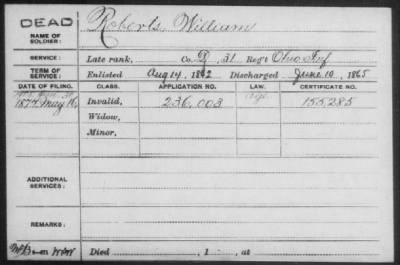 DEAD
NAME OF SOLDIER: Roberts, William
SERVICE: Late rank, Co. D, 31 Reg't Ohio Inf
TERM OF SERVICE: Enlisted Aug 14, 1862 Discharged June 10, 1865
DATE OF FILING. CLASS. APPLICATION NO. LAW. CERTIFICATE NO.
1877 May 16, Invalid, 236,003 155,285
Widow,
Minor,
ADDITIONAL SERVICES:
REMARKS:
Died , 1 , at